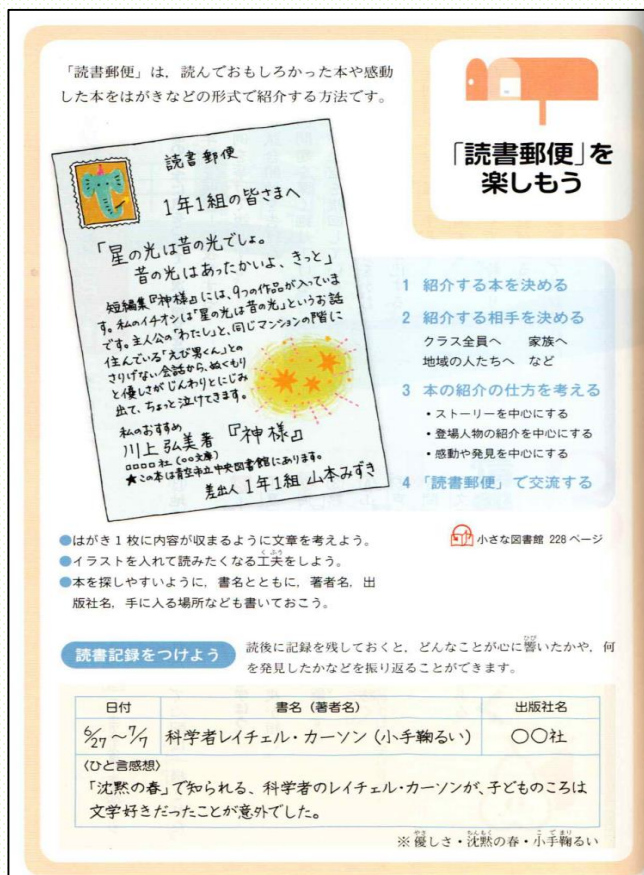 「読書郵便」は，読んでおもしろかった本や感動
した本をはがきなどの形式で紹介する方法です。
「読書郵便」を
楽しもう
読書郵便
1年1組の皆さまへ
「星の光は昔の光でしょ。
昔の光はあったかいよ、きっと」
短編集『神様』には、9つの作品が入っていま
す。私のイチオシは「星の光は昔の光」というお話
です。主人公の「わたし」と、同じマンションの階に
住んでいる「えび男くん」との
さりげない会話から、ぬくもり
と優しさがじんわりとにじみ
出て、ちょっと泣けてきます。
私のおすすめ
川上弘美著 『神様』
□□□□社（○○文庫）
★この本は青空市立中央図書館にあります。
差出人 1年1組 山本みずき
1 紹介する本を決める
2 紹介する相手を決める
クラス全員へ 家族へ
地域の人たちへ など
3 本の紹介の仕方を考える
・ストーリーを中心にする
・登場人物の紹介を中心にする
・感動や発見を中心にする
4 「読書郵便」で交流する
●はがき1枚に内容が収まるように文章を考えよう。
●イラストを入れて読みたくなる工夫をしよう。
●本を探しやすいように，書名とともに，著者名，出
版社名，手に入る場所なども書いておこう。
小さな図書館 228 ページ
読書記録をつけよう
読後に記録を残しておくと，どんなことが心に響いたかや，何
を発見したかなどを振り返ることができます。
日付 書名（著者名） 出版社名
6/27～7/7 科学者レイチェル・カーソン（小手鞠るい） ○○社
〈ひと言感想〉
「沈黙の春」で知られる、科学者のレイチェル・カーソンが、子どものころは
文学好きだったことが意外でした。
※優しさ・沈黙の春・小手鞠るい